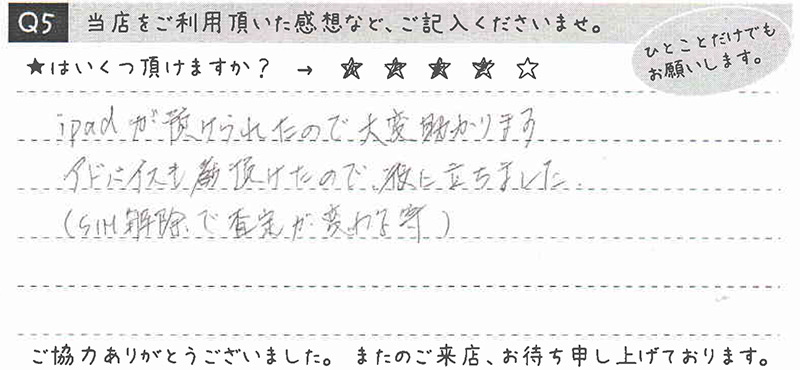 Q5 当店をご利用頂いた感想など、ご記入くださいませ。
ひとことだけでも
お願いします。
★はいくつ頂けますか? → ★ ★ ★ ★ ☆
ipadが預けられたので大変助かります
アドバイスも頂けたので、役に立ちました。
(SIM解除で査定が変わる等)
ご協力ありがとうございました。 またのご来店、お待ち申し上げております。